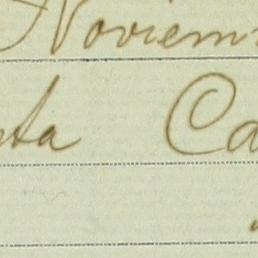 Noviem
ta Ca